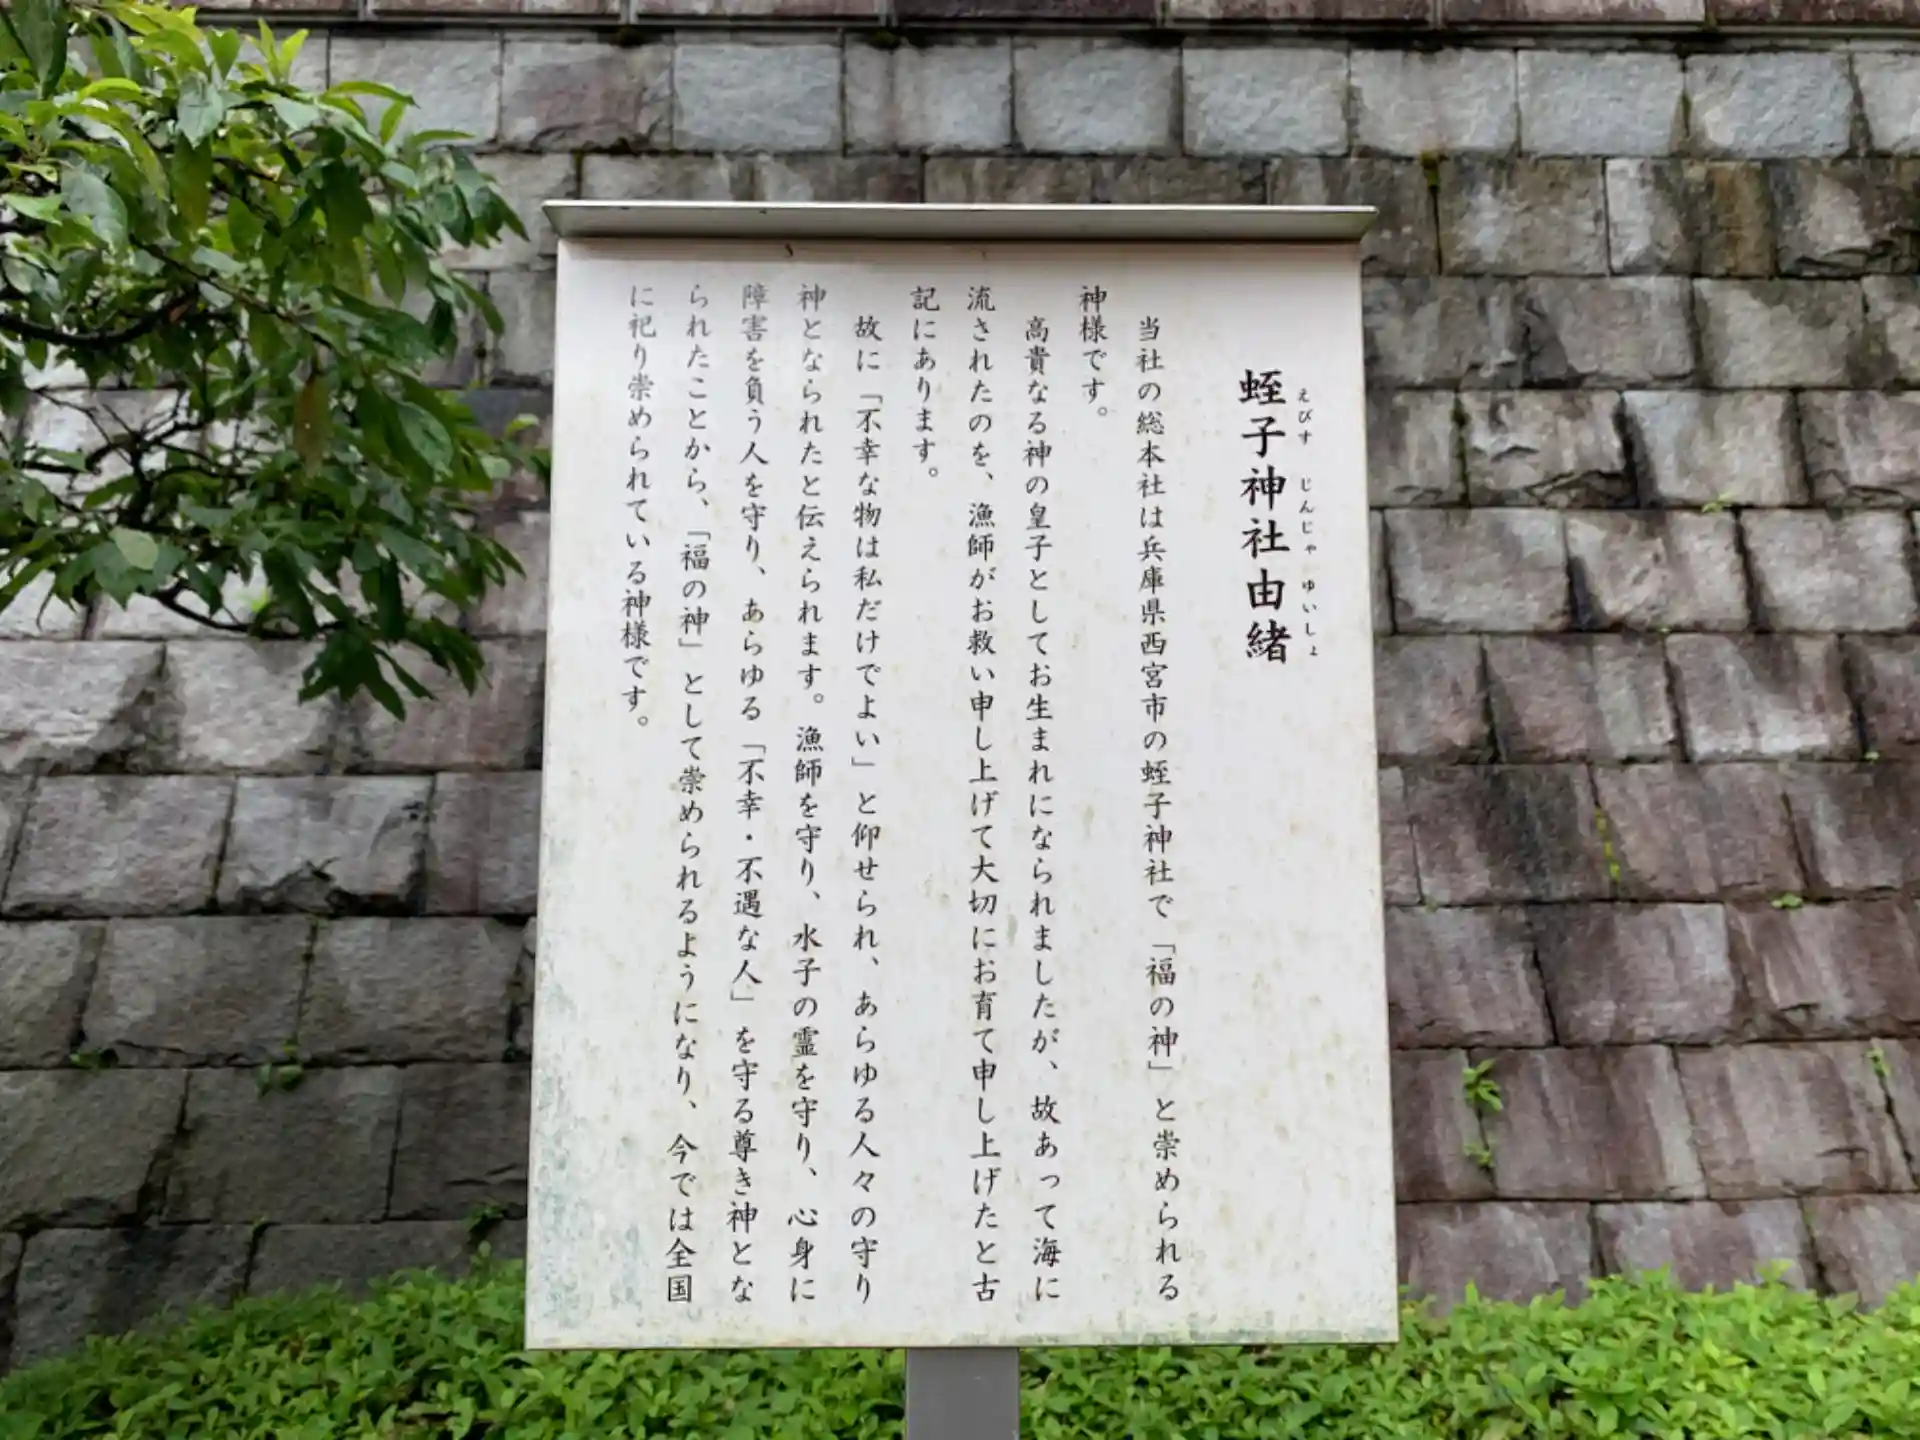 蛭子神社由緒
えびす じんじゃ ゆいしょ
当社の総本社は兵庫県西宮市の蛭子神社で「福の神」と崇められる
神様です。
高貴なる神の皇子としてお生まれになられましたが、故あって海に
流されたのを、漁師がお救い申し上げて大切にお育て申し上げたと古
記にあります。
故に「不幸な物は私だけでよい」と仰せられ、あらゆる人々の守り
神となられたと伝えられます。漁師を守り、水子の霊を守り、心身に
障害を負う人を守り、あらゆる「不幸・不遇な人」を守る尊き神とな
られたことから、「福の神」として崇められるようになり、今では全国
に祀り崇められている神様です。